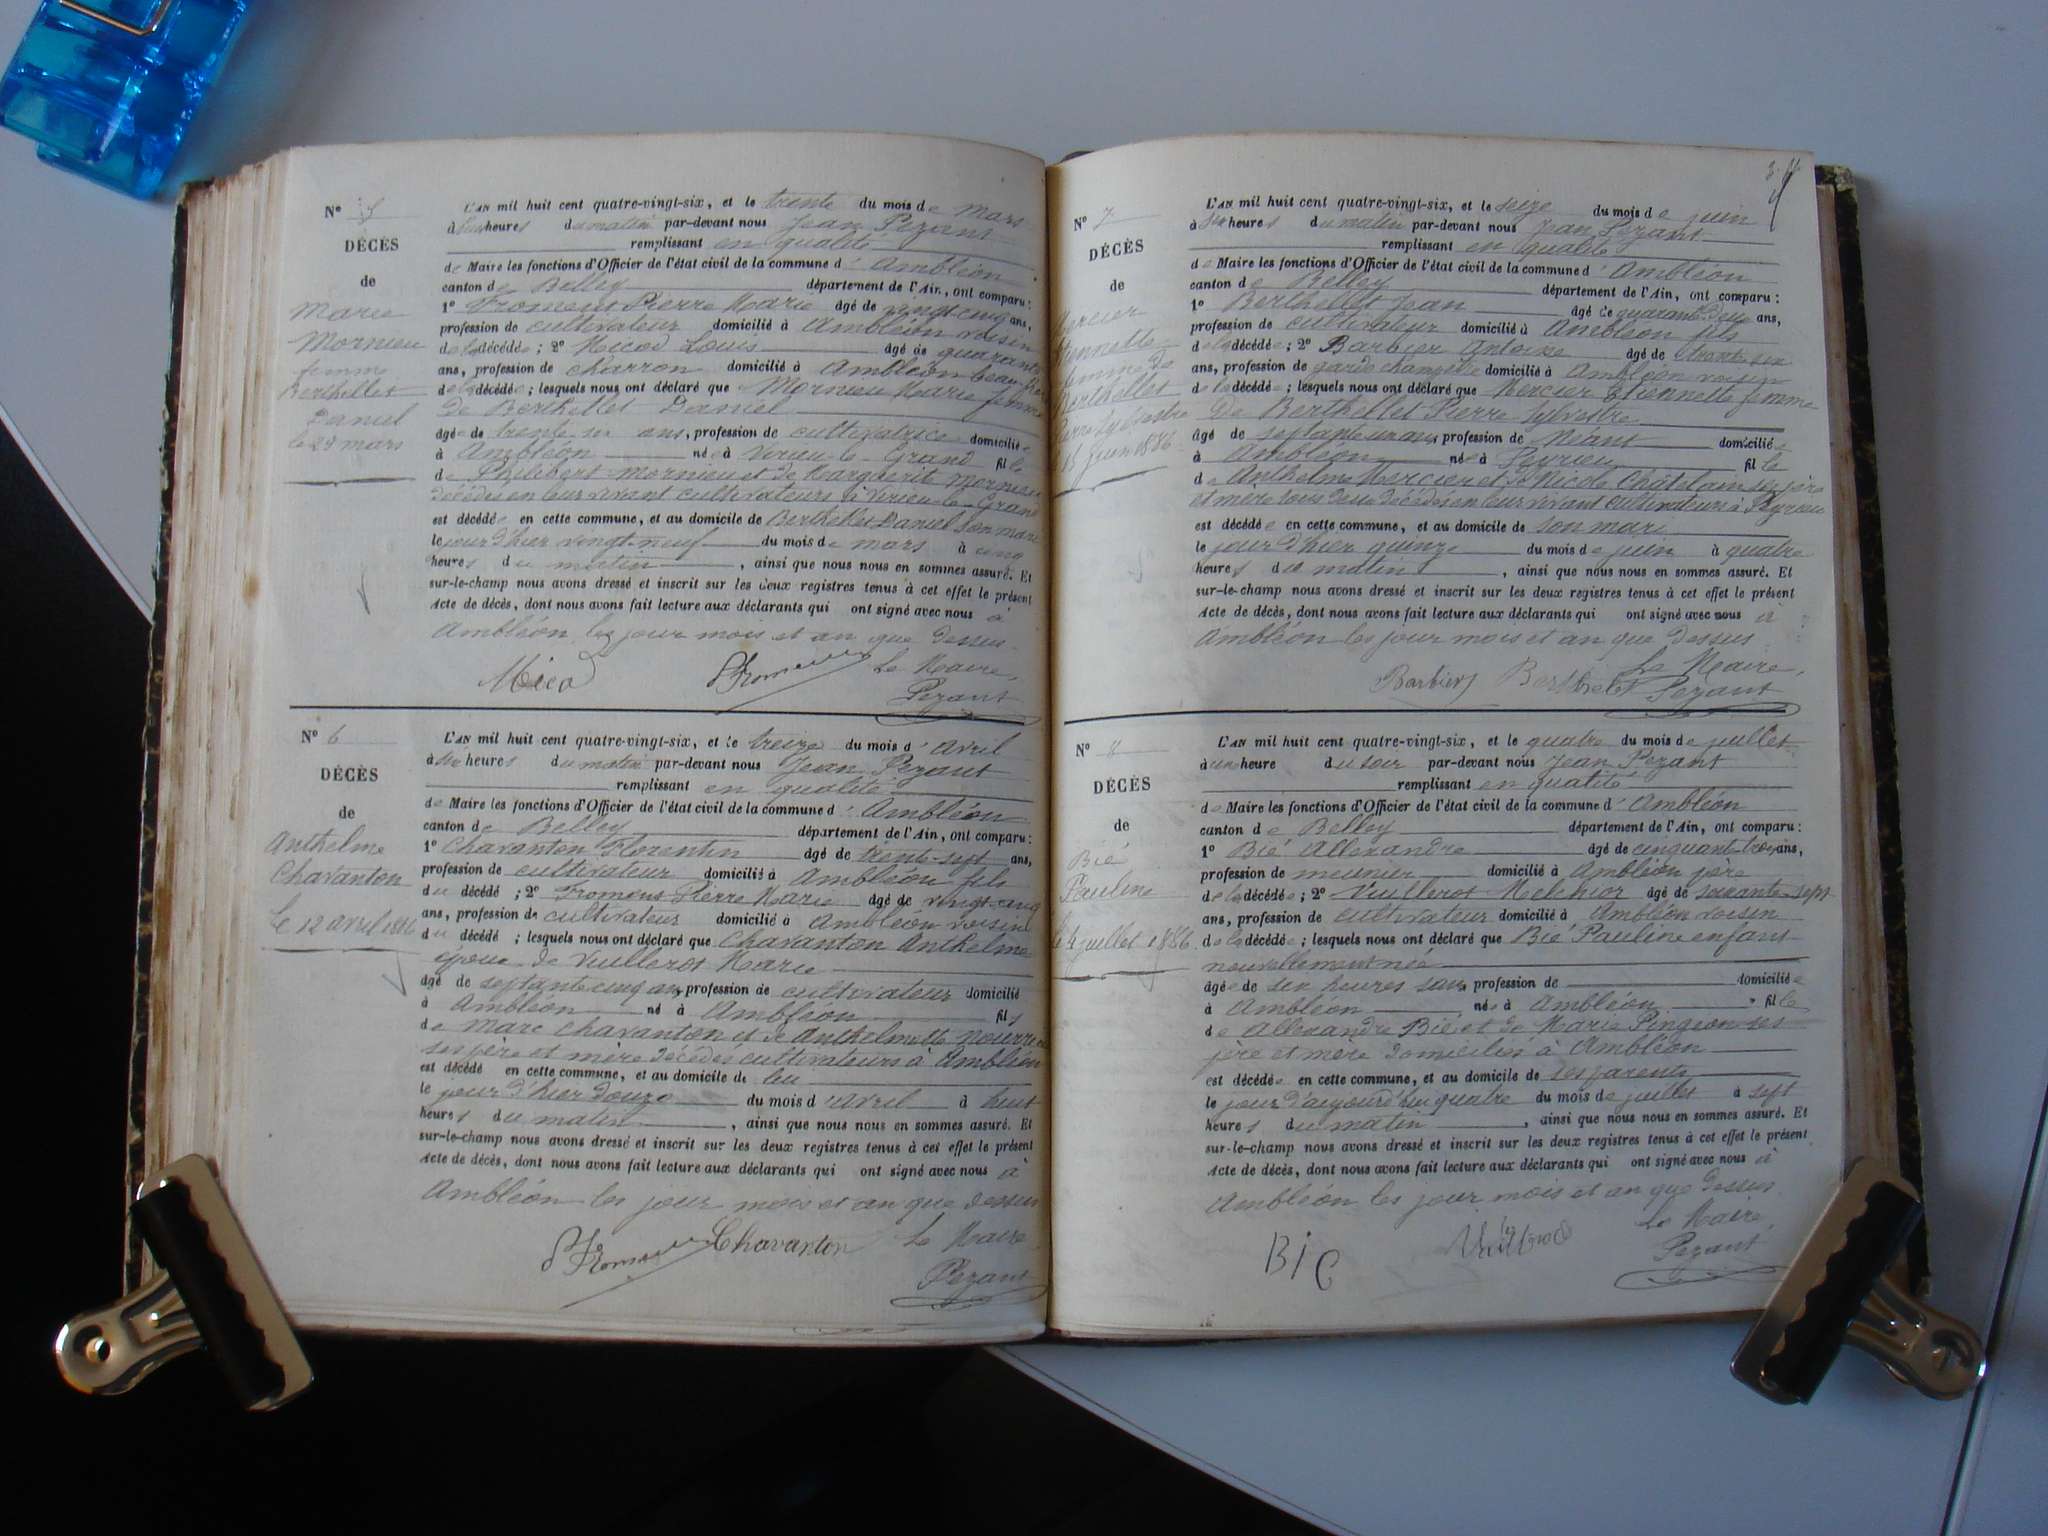 N° 5
DÉCÈS
de
Marie
Mornieu
femme
Berthellet
Daniel
le 29 mars
L'AN mil huit cent quatre-vingt-six, et le trente du mois de Mars
à six heures du matin par-devant nous Jean Pezant
remplissant en qualité
de Maire les fonctions d'Officier de l'état civil de la commune d' Ambléon
canton de Belley département de l'Ain, ont comparu :
1° Froment Pierre Marie âgé de vingt-cinq ans,
profession de cultivateur domicilié à Ambléon voisin
de la décédée ; 2° Micod Louis âgé de quarante
ans, profession de charron domicilié à Ambléon beau-frère
de la décédée ; lesquels nous ont déclaré que Mornieu Marie femme
de Berthellet Daniel
âgée de trente six ans, profession de cultivatrice domiciliée
à Ambléon née à Virieu-le-Grand fille
de Philebert Mornieu et de Marguerite Mornieu
décédés en leur vivant cultivateurs à Virieu-le-Grand
est décédée en cette commune, et au domicile de Berthellet Daniel son mari
le jour d'hier vingt-neuf du mois de mars à cinq
heures du matin, ainsi que nous nous en sommes assuré. Et
sur-le-champ nous avons dressé et inscrit sur les deux registres tenus à cet effet le présent
Acte de décès, dont nous avons fait lecture aux déclarants qui ont signé avec nous à
Ambléon les jour mois et an que dessus
Micod Froment Le Maire,
Pezant
N° 6
DÉCÈS
de
Anthelme
Chavanton
Le 12 avril 1886
L'AN mil huit cent quatre-vingt-six, et le treize du mois d' Avril
à six heures du matin par-devant nous Jean Pezant
remplissant en qualité
de Maire les fonctions d'Officier de l'état civil de la commune d' Ambléon
canton de Belley département de l'Ain, ont comparu :
1° Chavanton Florentin âgé de trente-sept ans,
profession de cultivateur domicilié à Ambléon fils
du décédé ; 2° Froment Pierre Marie âgé de vingt-cinq
ans, profession de cultivateur domicilié à Ambléon voisin
du décédé ; lesquels nous ont déclaré que Chavanton Anthelme
époux de Vuillerot Marie
âgé de septante cinq ans, profession de cultivateur domicilié
à Ambléon né à Ambléon fils
de Marc Chavanton et de Anthelmette
ses père et mère décédés cultivateurs à Ambléon
est décédé en cette commune, et au domicile de lui
le jour d'hier douze du mois d'Avril à huit
heures du matin, ainsi que nous nous en sommes assuré. Et
sur-le-champ nous avons dressé et inscrit sur les deux registres tenus à cet effet le présent
Acte de décès, dont nous avons fait lecture aux déclarants qui ont signé avec nous à
Ambléon les jour mois et an que dessus
Froment Chavanton Le Maire
Pezant
N° 7
DÉCÈS
de
Mercier
Etiennette
femme de
Berthellet
Pierre Sylvestre
15 juin 1886
L'AN mil huit cent quatre-vingt-six, et le seize du mois de juin
à six heures du matin par-devant nous Jean Pezant
remplissant en qualité
de Maire les fonctions d'Officier de l'état civil de la commune d' Ambléon
canton de Belley département de l'Ain, ont comparu :
1° Berthellet Jean âgé de quarante deux ans,
profession de cultivateur domicilié à Ambléon fils
de la décédée ; 2° Barbier Antoine âgé de trente six
ans, profession de garde champêtre domicilié à Ambléon voisin
de la décédée ; lesquels nous ont déclaré que Mercier Etiennette femme
de Berthellet Pierre Sylvestre
âgé de septante un ans, profession de Néant domiciliée
à Ambléon née à Peyrieu fille
de Anthelme Mercier et de Nicole Châtelain ses père
et mère tous deux décédés en leur vivant cultivateurs à Peyrieu
est décédée en cette commune, et au domicile de son mari
le jour d'hier quinze du mois de juin à quatre
heures du matin, ainsi que nous nous en sommes assuré. Et
sur-le-champ nous avons dressé et inscrit sur les deux registres tenus à cet effet le présent
Acte de décès, dont nous avons fait lecture aux déclarants qui ont signé avec nous à
Ambléon les jour mois et an que dessus
Barbier Berthelet Le Maire,
Pezant
N° 8
DÉCÈS
de
Bié
Pauline
le 4 juillet 1886
L'AN mil huit cent quatre-vingt-six, et le quatre du mois de juillet
à une heure du soir par-devant nous Jean Pezant
remplissant en qualité
de Maire les fonctions d'Officier de l'état civil de la commune d' Ambléon
canton de Belley département de l'Ain, ont comparu :
1° Bié Allexandre âgé de cinquante trois ans,
profession de meunier domicilié à Ambléon père
de la décédée ; 2° Vuillerot Melchior âgé de soixante-sept
ans, profession de cultivateur domicilié à Ambléon voisin
de la décédée ; lesquels nous ont déclaré que Bié Pauline enfant
nouvellement née
âgée de six heures sans profession de domiciliée
à Ambléon née à Ambléon fille
de Allexandre Bié et de Marie Pingeon ses
père et mère domiciliés à Ambléon
est décédée en cette commune, et au domicile de ses parents
le jour d'aujourd'hui quatre du mois de juillet à sept
heures du matin, ainsi que nous nous en sommes assuré. Et
sur-le-champ nous avons dressé et inscrit sur les deux registres tenus à cet effet le présent
Acte de décès, dont nous avons fait lecture aux déclarants qui ont signé avec nous à
Ambléon les jour mois et an que dessus
Le Maire
Bié Pezant